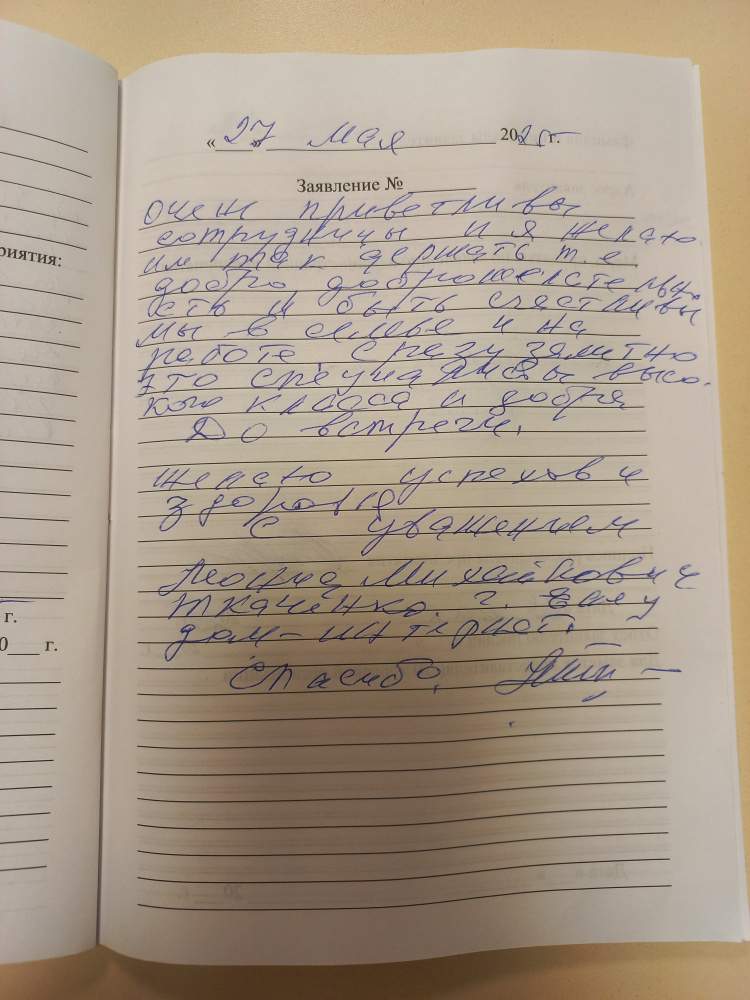 «27» мая 2025 г.
Заявление №
очен приветливы
сотрудницы и я желаю
им так держать т.е.
добро доброжелательн.
ость и быть счастливы
мы в семье и на
работе, сразу заметно
это специалисты высо.
кого класса и добра
До встречи.
желаю успехов и
здоровья
С уважением
Леонид Михайлович
Ткаченко. г.
дом-интернат.
Спасибо.
риятия:
г.
0___ г.